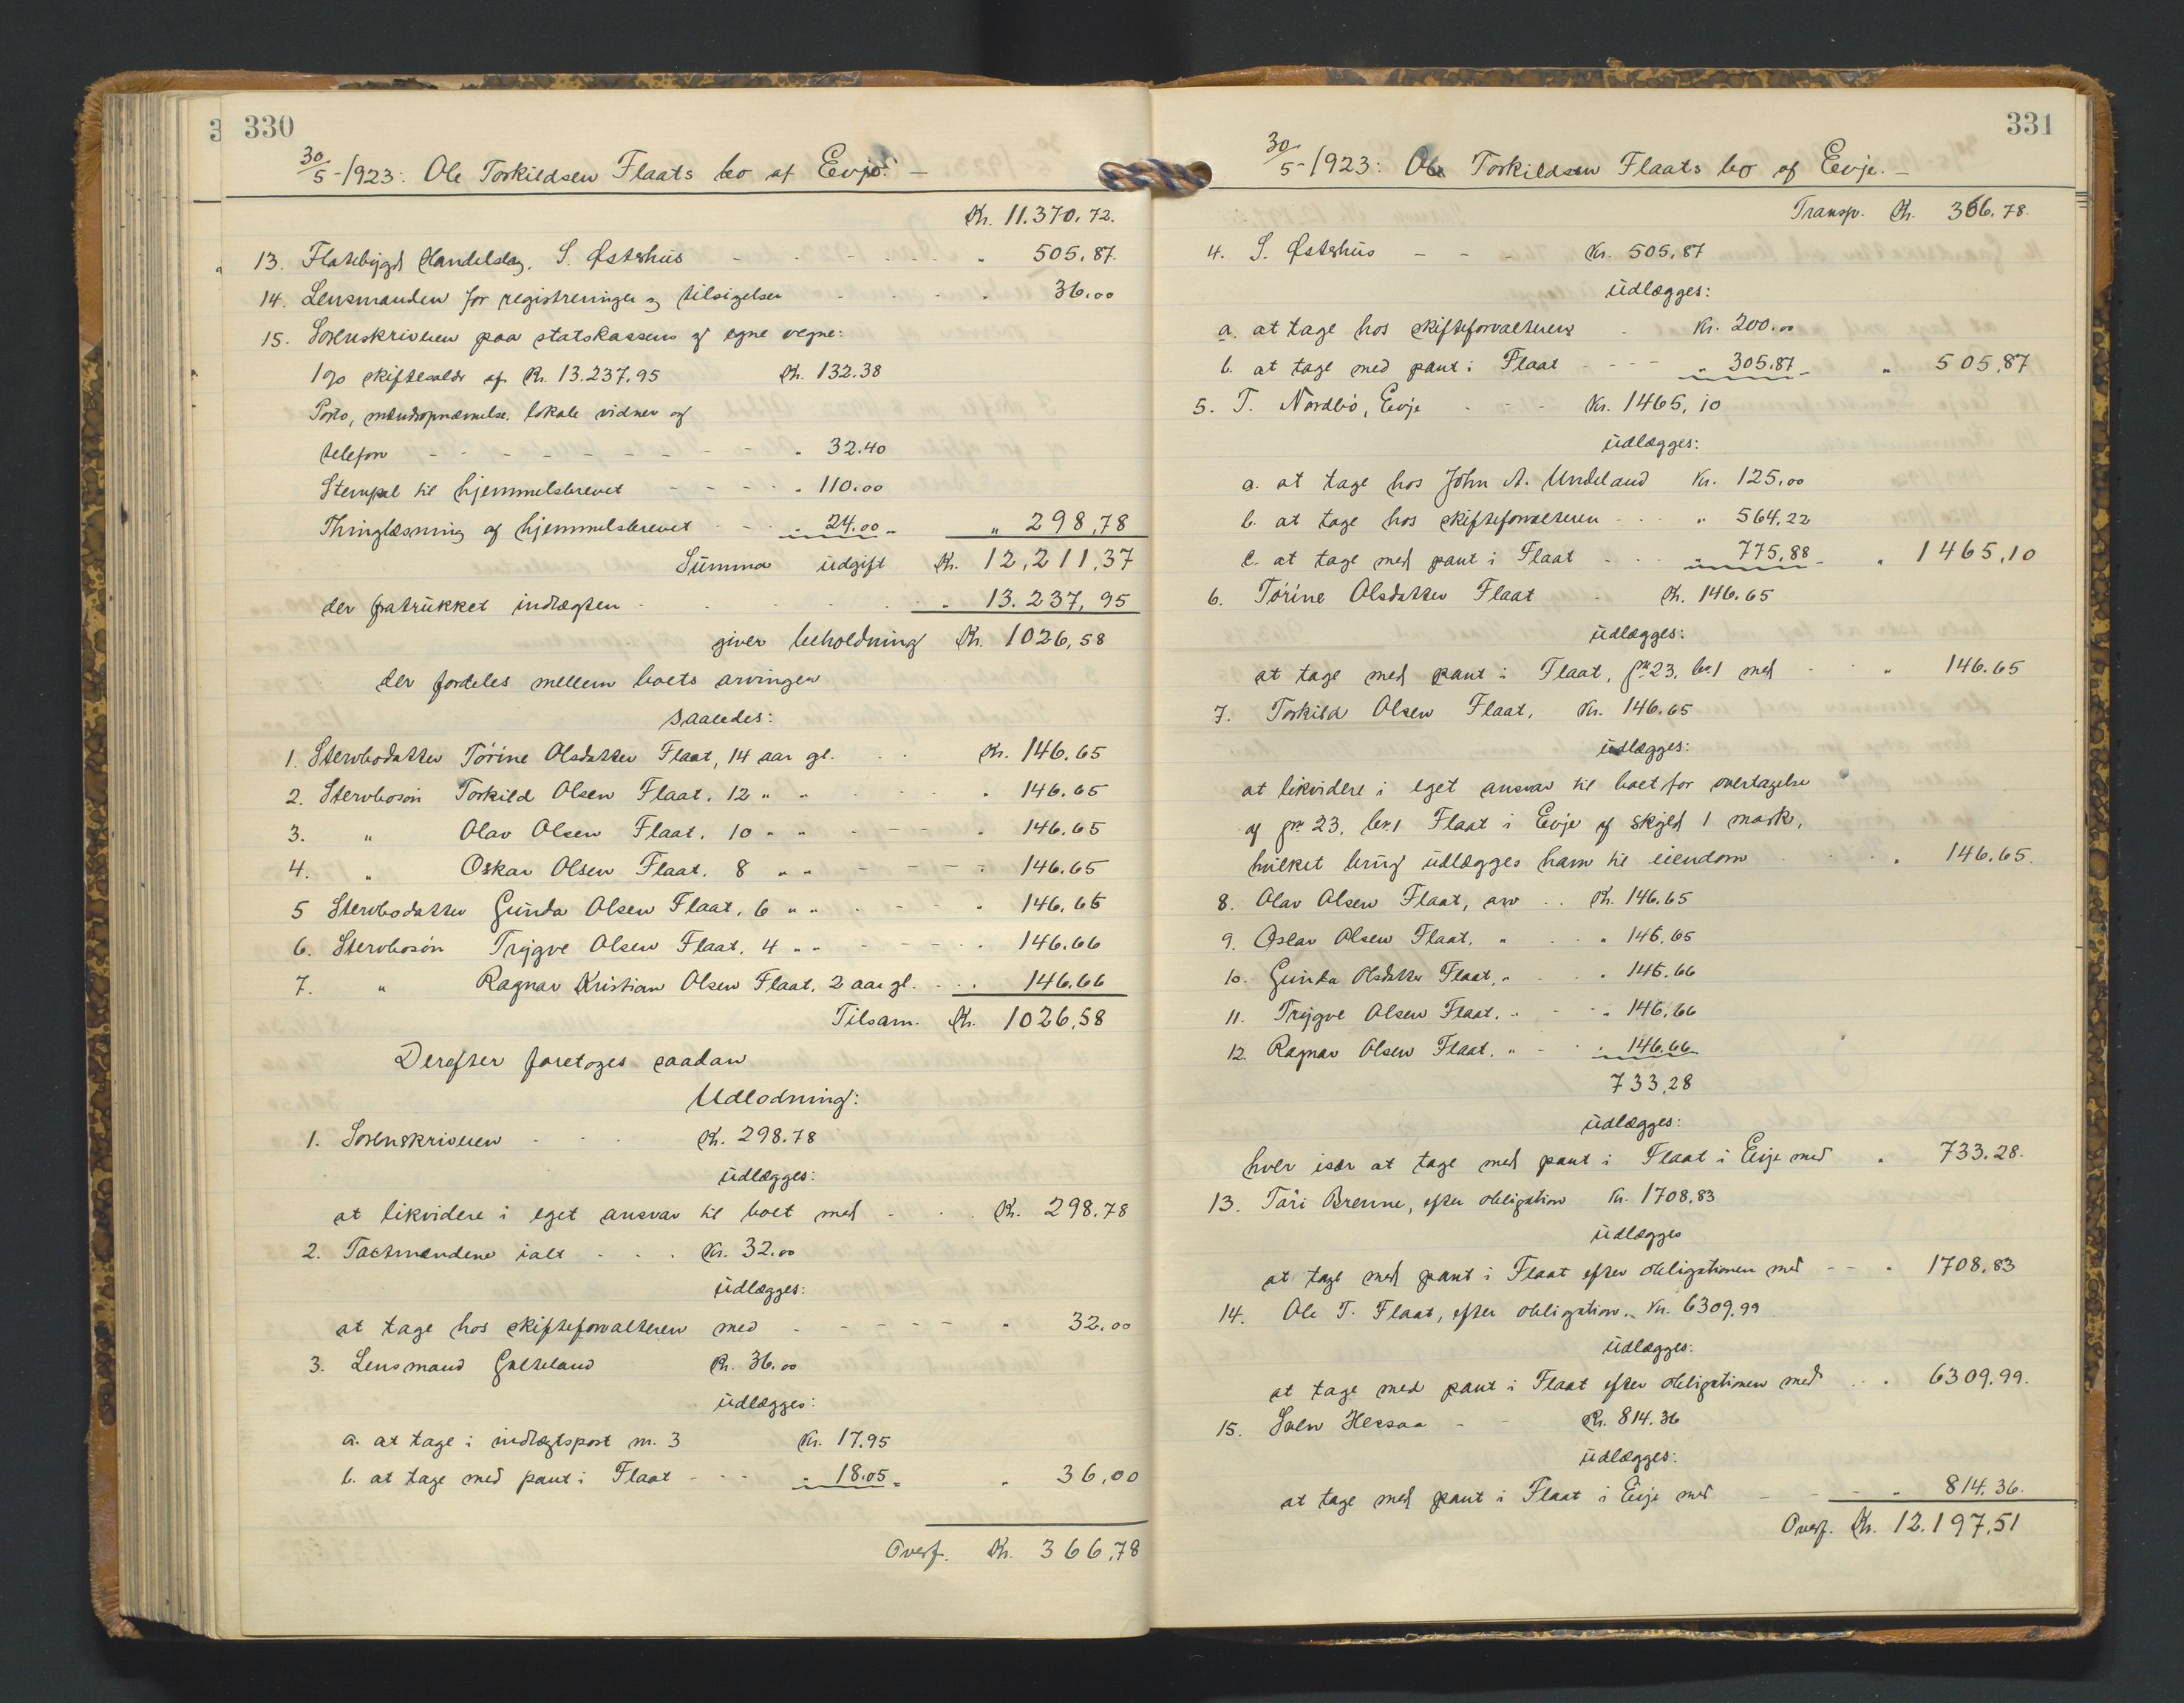 330
30/5-1923: Ole Torkildsen Flaats bo af Evje. -
Kr. 11.370,72.
13. Flatebygd Handelslag, S. Østerhus - - - - - - " 505,87.
14. Lensmanden for registreringer og tilsigelser - - - - " 36.00
15. Sorenskriveren paa statskassens og egne vegne:
1% skiftesalær af Kr. 13.237,95 Kr. 132.38
Porto, mændsopnævnelse, lokale vidner og
telefon - - - - - - - - - " 32.40
Stempel til hjemmelsbrevet - - - - " 110.00
Thinglæsning af hjemmelsbrevet - - - " 24.00 = " 298,78
Summa udgift Kr. 12,211,37
der fratrukket indtægten - - - - - " 13.237,95
giver beholdning Kr. 1026,58
der fordeles mellem boets arvinger
saaledes:
1. Stervbodatter Torine Olsdatter Flaat, 14 aar gl. - - Kr. 146.65
2. Stervbosøn Torkild Olsen Flaat, 12 " " - - - - " 146.65
3. " Olav Olsen Flaat, 10 " " - - - - " 146.65
4. " Oskar Olsen Flaat, 8 " " - - - - " 146.65
5 Stervbodatter Gunda Olsen Flaat, 6 " " - - - - " 146,66
6. Stervbosøn Trygve Olsen Flaat, 4 " " - - - - - 146.66
7. " Ragnar Kristian Olsen Flaat, 2 aar gl. - - - 146.66
Tilsam. Kr. 1026,58
Derefter foretoges saadan
Udlodning:
1. Sorenskriveren - - - Kr. 298.78
udlægges:
at likvidere i eget ansvar til boet med - - - Kr. 298.78
2. Taxtmændene ialt - - - Kr. 32.00
udlægges:
at tage hos skifteforvalteren med - - - - - " 32.00
3. Lensmand Galteland Kr. 36.00
udlægges:
a. at tage i indtægtspost nr. 3 Kr. 17.95
b. at tage med pant i Flaat - - - " 18.05 = " 36,00
Overf. Kr. 366,78
331
30/5-1923: Ole Torkildsen Flaats bo af Evje. -
Transp. Kr. 366,78.
4. S. Østerhus - - - Kr. 505,87
udlægges:
a. at tage hos skifteforvalteren - Kr. 200.00
b. at tage med pant i Flaat - - - " 305.87 = " 505,87
5. T. Nordbø, Evje - - - Kr. 1465,10
udlægges:
a. at tage hos John A. Undeland Kr. 125,00
b. at tage hos skifteforvalteren - - - " 564,22
c. at tage med pant i Flaat - - - " 775,88 - " 1465,10
6. Torine Olsdatter Flaat - Kr. 146.65
udlægges:
at tage med pant i Flaat, gnr 23, br.1 med - - " 146.65
7. Torkild Olsen Flaat, Kr. 146.65
udlægges:
at likvidere i eget ansvar til boet for overtagelse
af gnr 23, br.1 Flaat i Evje af skyld 1 mark,
hvilket brug udlægges ham til eiendom - - - " 146.65.
8. Olav Olsen Flaat, arv - - Kr. 146.65
9. Oskar Olsen Flaat, " - - " 146,65
10. Gunda Olsdatter Flaat, " - - " 146.66
11. Trygve Olsen Flaat, " - - " 146,66
12. Ragnar Olsen Flaat, " - - " 146.66
733,28
udlægges:
hver især at tage med pant i Flaat i Evje med " 733.28.
13. Tari Brenne, efter obligation Kr. 1708,83
udlægges
at tage med pant i Flaat efter obligationen med - - " 1708,83
14. Ole T. Flaat, efter obligation, Kr. 6309,99
udlægges:
at tage med pant i Flaat efter obligationen med - - " 6309.99.
15. Sven - - Kr. 814.36
udlægges:
at tage med pant i Flaat i Evje med - - - " 814.36.
Overf. Kr. 12.197,51